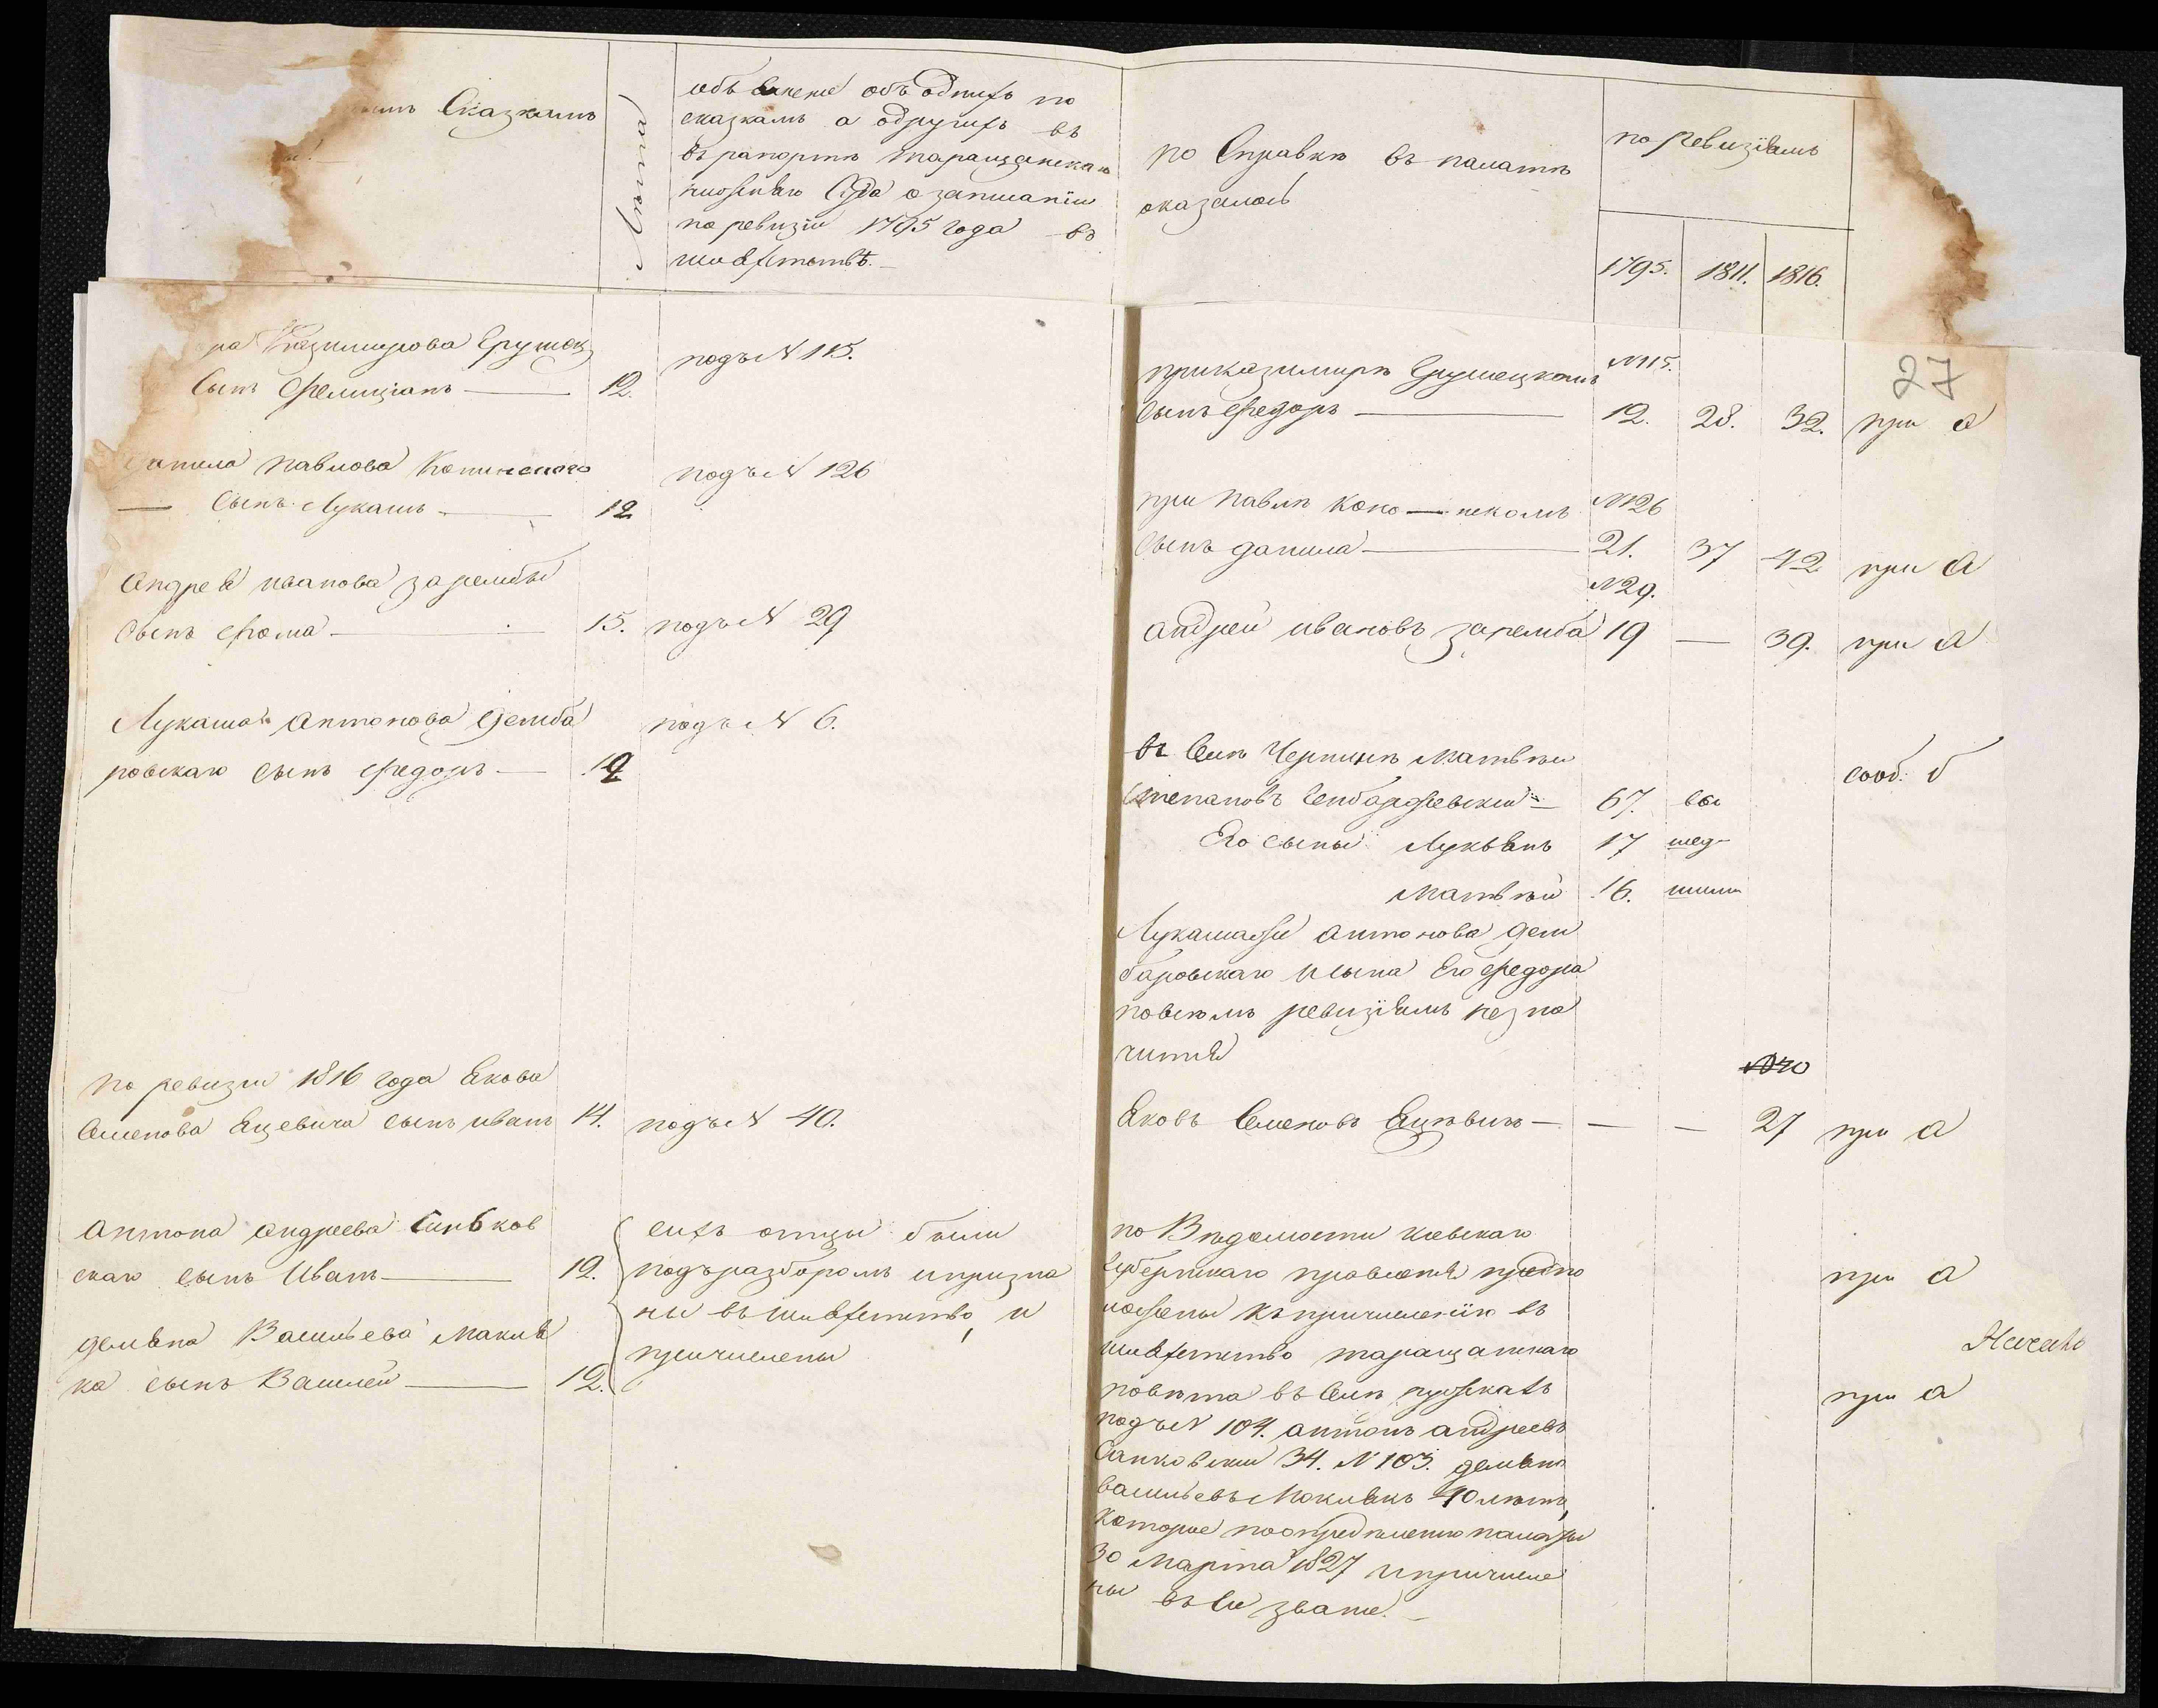 Сказкамъ
лѣта
объявлено объ однихъ по
сказкамъ а одругихъ въ
въ рапортѣ таращанскаго
нижняго Суда о записаніи
по ревизіи 1795 года въ
шляхетствѣ.
по Справкѣ въ палатѣ
оказалось
по ревизіямъ
1795. 1811. 1816.
27
Казимирова Грушец
Сынъ Фелиціанъ — 12.
подъ N 115.
приказимирѣ Грушецкомъ N 115.
сынъ Федоръ — 12. 28. 32. при а
Данила Павлова
— Сынъ Лукашъ — 12
подъ N 126
при Павлѣ Коно—нскомъ N 126
сынъ данила — 21. 37 42 при а
Андрея иванова зарембы
сынъ Фома — 15.
подъ N 29
N 29.
андрей ивановъ заремба 19 — 39. при а
Лукаша Антонова Демба
ровскаго сынъ Федоръ — 12
подъ N 6.
въ Селѣ Чернинѣ Матвѣй
Степановъ 67. вы
сооб: б
Его сыны Лукьянъ 17 шед
Матвѣй 16. шими
Лукашаже антонова дем
баровскаго и сына Его Федора
повсѣмъ ревизіямъ незна
чится
по ревизіи 1816 года Якова
Семенова Яцевича сынъ иванъ 14.
подъ N 40.
N 40
Яковъ Семеновъ Яцѣвичь — — — 27 при а
Антона андреева Синьков
скаго сынъ Иванъ — 12.
демьяна Васильева Макия
ка сынъ Василей — 12.
сихъ отцы были
подъразборомъ ипризна
ны въшляхетство, и
причислены
по Вѣдомости киевскаго
Губернскаго правленія предпо
ложены къпричисленію въ
шляхетство таращанскаго
повѣта въ Селѣ
подъ N 104. антонъ андреевъ
Санковскій 34. N 103. демьянъ
васильевъ Мокиякъ 40 лѣтъ,
которые поопредѣленію палаты
30 Марта 1827 ипричисле
ны въ Сіе званіе. —
при а
Начато
при а